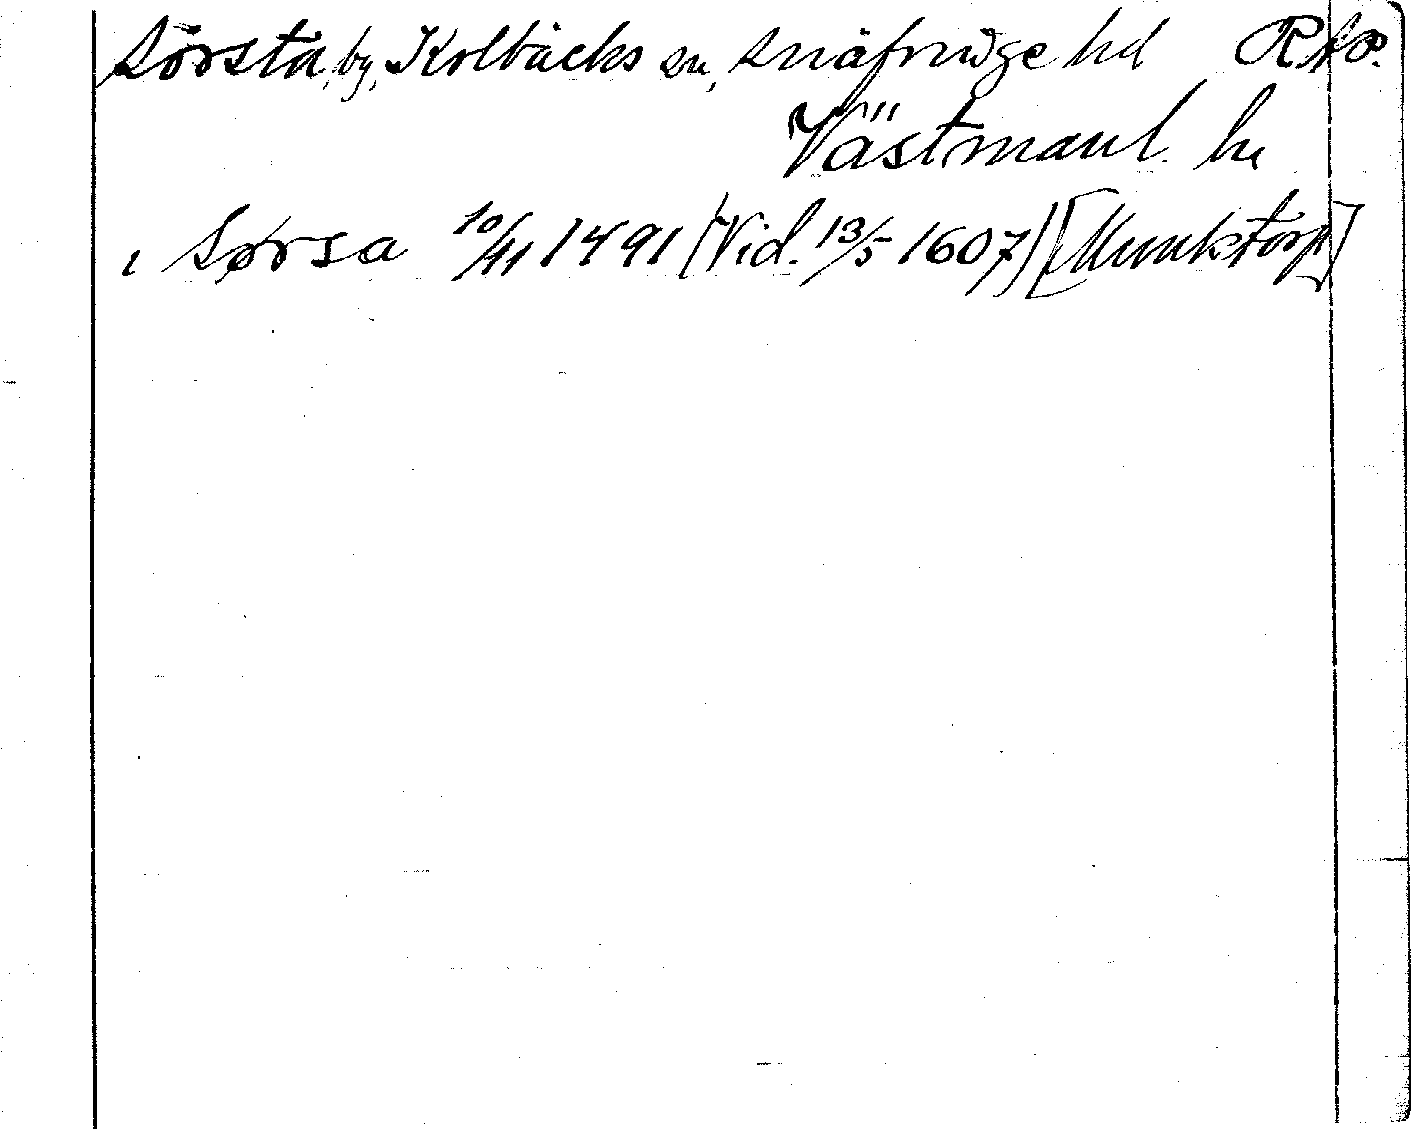 Sörsta, by, Kolbäcks sn, Snäfringe hd RAp.
Västmanl. län
i Sørsa 10/11 1491 (Vid. 13/5 1607) [Munktorp]